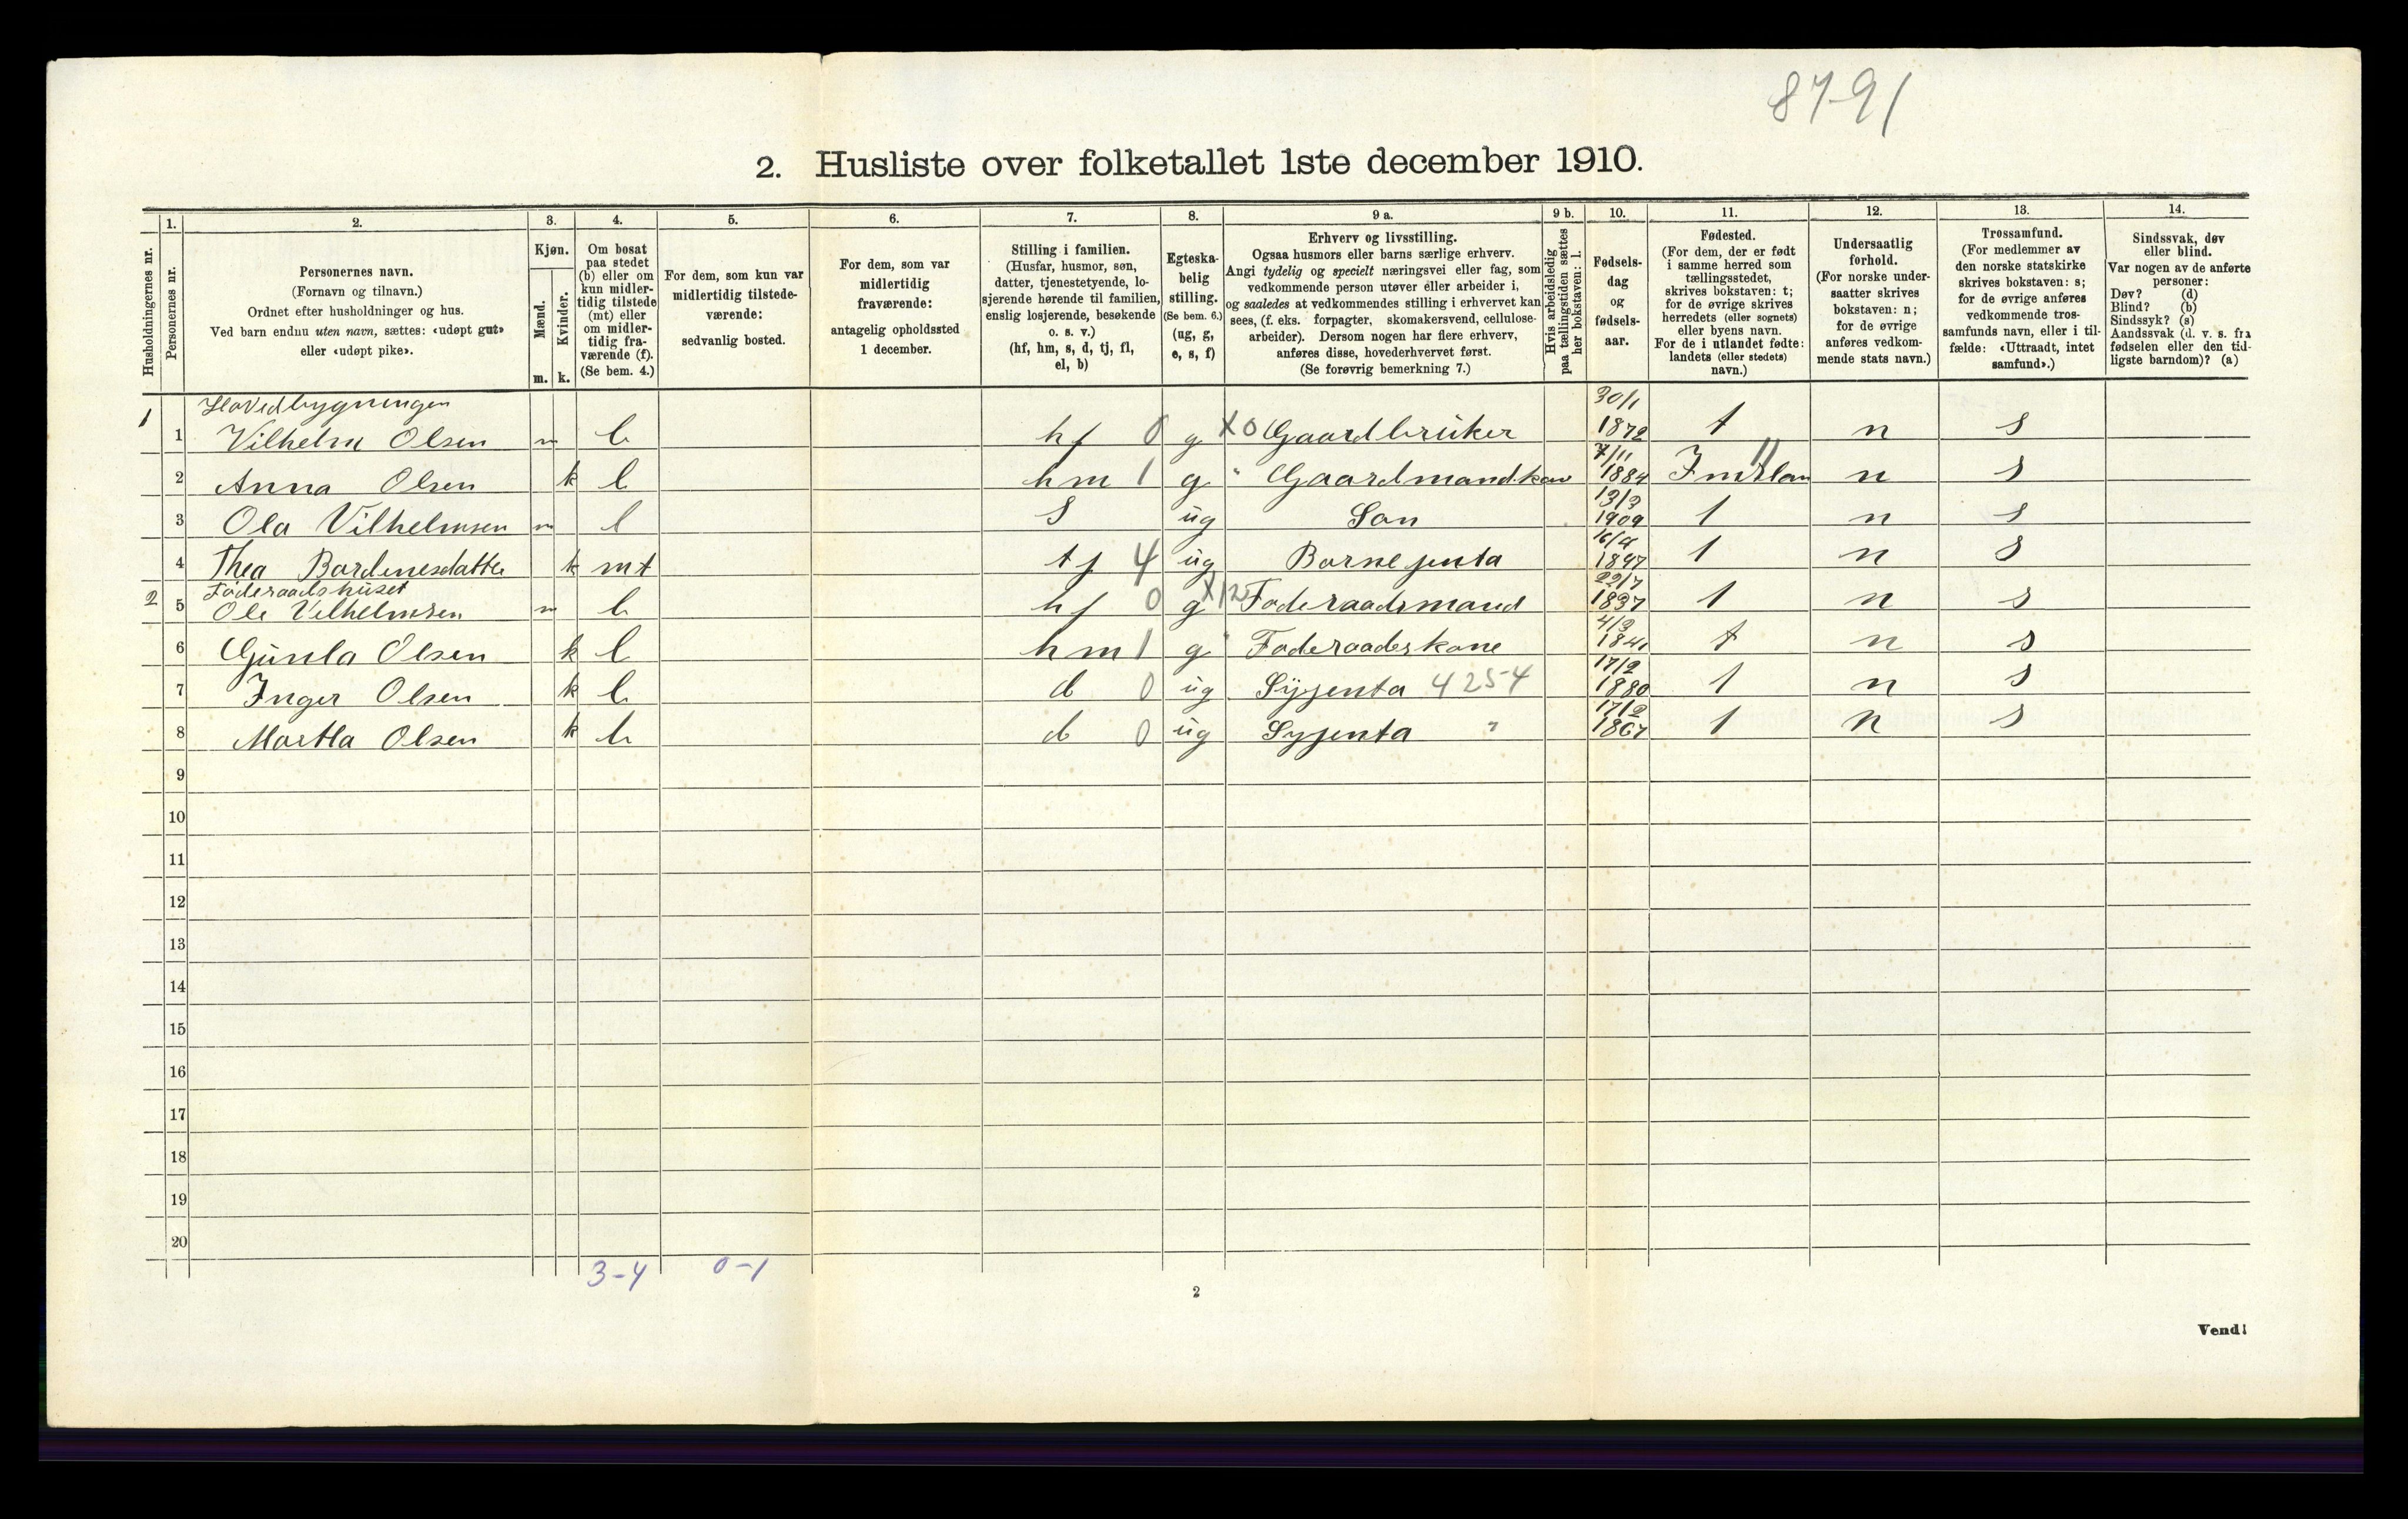 8791
2. Husliste over folketallet 1ste december 1910.
Husholdningernes nr.
1.
Personernes nr.
2.
Personernes navn.
(Fornavn og tilnavn.)
Ordnet efter husholdninger og hus.
Ved barn endnu uten navn, sættes: «udøpt gut»
eller «udøpt pike».
3.
Kjøn.
Mænd.
Kvinder.
m. k.
4.
Om bosat
paa stedet
(b) eller om
kun midler-
tidig tilstede
(mt) eller
om midler-
tidig fra-
værende (f).
(Se bem. 4.)
5.
For dem, som kun var
midlertidig tilstede-
værende:
sedvanlig bosted.
6.
For dem, som var
midlertidig
fraværende:
antagelig opholdssted
1 december.
7.
Stilling i familien.
(Husfar, husmor, søn,
datter, tjenestetyende, lo-
sjerende hørende til familien,
enslig losjerende, besøkende
o. s. v.)
(hf, hm, s, d, tj, fl,
el, b)
8.
Egteska-
belig
stilling.
(Se bem. 6.)
(ug, g,
e, s, f)
9 a.
Erhverv og livsstilling.
Ogsaa husmors eller barns særlige erhverv.
Angi tydelig og specielt næringsvei eller fag, som
vedkommende person utøver eller arbeider i,
og saaledes at vedkommendes stilling i erhvervet kan
sees, (f. eks. forpagter, skomakersvend, cellulose-
arbeider). Dersom nogen har flere erhverv,
anføres disse, hovederhvervet først.
(Se forøvrig bemerkning 7.)
9 b.
Hvis arbeidsledig
paa tællingstiden sættes
her bokstaven: l.
10.
Fødsels-
dag
og
fødsels-
aar.
11.
Fødested.
(For dem, der er født
i samme herred som
tællingsstedet,
skrives bokstaven: t;
for de øvrige skrives
herredets (eller sognets)
eller byens navn.
For de i utlandet fødte:
landets (eller stedets)
navn.)
12.
Undersaatlig
forhold.
(For norske under-
saatter skrives
bokstaven: n;
for de øvrige
anføres vedkom-
mende stats navn.)
13.
Trossamfund.
(For medlemmer av
den norske statskirke
skrives bokstaven: s;
for de øvrige anføres
vedkommende tros-
samfunds navn, eller i til-
fælde: «Uttraadt, intet
samfund».)
14.
Sindssvak, døv
eller blind.
Var nogen av de anførte
personer:
Døv? (d)
Blind? (b)
Sindssyk? (s)
Aandssvak (d. v. s. fra
fødselen eller den tid-
ligste barndom)? (a)
Hovedbygningen
1 1 Vilhelm Olsen m b hf 0 g X0 Gaardbruker 30/1 1872 t n s
2 Anna Olsen k b hm 1 g " Gaardmandkone 7/11 1884 11 n s
3 Ola Vilhelmsen m b s ug Søn 13/3 1909 t n s
4 Thea Bardinesdatter k mt tj 4 ug Barnejenta 16/4 1897 t n s
Føderaadshuset
2 5 Ole Vilhelmsen m b hf 0 g X12 Føderaadsmand 22/7 1837 t n s
6 Gunla Olsen k b hm 1 g " Føderaadskone 4/3 1841 t n s
7 Inger Olsen k b d 0 ug Syjenta 4254 17/2 1880 t n s
8 Martha Olsen k b d 0 ug Syjenta " 17/2 1867 t n s
9
10
11
12
13
14
15
16
17
18
19
20
3-4 0-1
2
Vend!